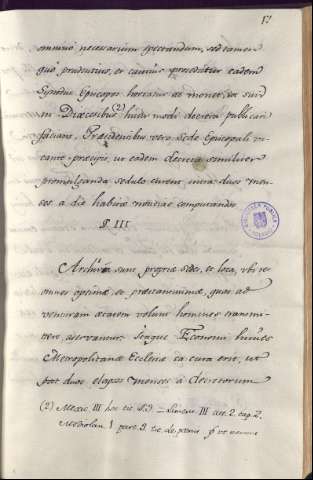 17
omninò necessarium spectandum, sed tamen
quò prudentius, et cautius procedatur eadem
Synodus Episcopos hortatur ac monet, ut suis
in Diœcesibus (2) hujus modi decreta publicari
faciant. Præsidentibus vero Sede Episcopali va-
cante præcipit, ut eadem decreta similiter
promulganda sedulo curent intra duos men-
ses à die habitæ notitiæ computandos
§. III
Archiva sunt propriæ sedes, et loca, ubi res
omnes optimæ et præstantissimæ, quas ad
venturam ætatem volunt homines transmit-
tere, asservantur. Itaque Œconomi hujus
Metropolitanæ Ecclesiæ ea cura erit, ut
post duos elapsos menses à decretorum
(2) Mexic. III hoc tit. §.3 — Limens. III act. 2. cap. 2.
Mediolan. I part. 2. tit. de
BIBLIOTECA PUBLICA
TOLEDO